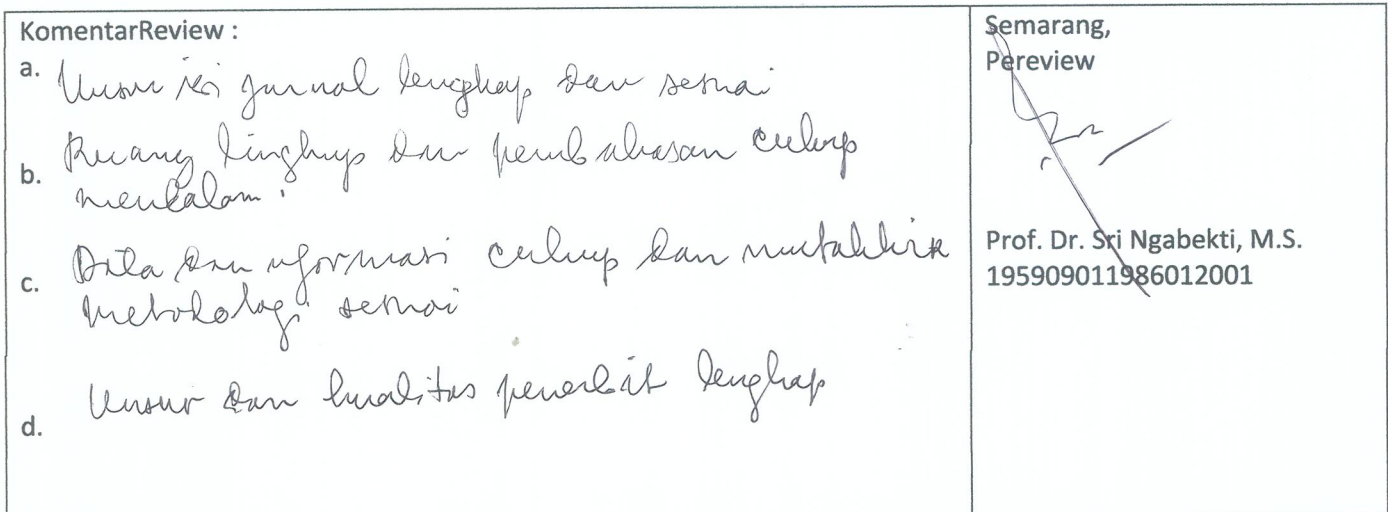 KomentarReview :
a. Unsur isi jurnal lengkap dan sesuai
b. Ruang lingkup dan pembahasan cukup
mendalam.
c. Data dan informasi cukup dan mutakhir
metodologi sesuai
d. Unsur dan kualitas penerbit lengkap
Semarang,
Pereview
Prof. Dr. Sri Ngabekti, M.S.
195909011986012001